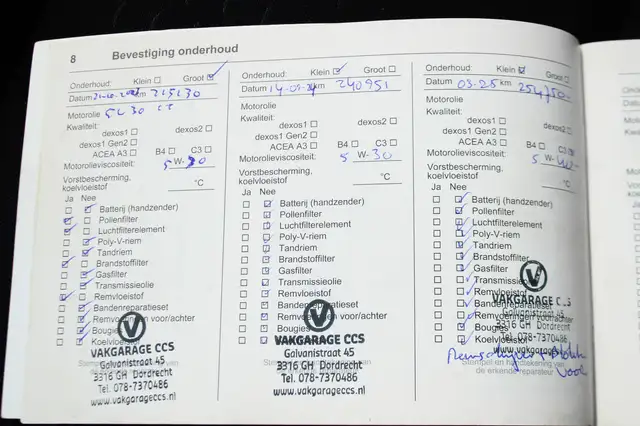 8 Bevestiging onderhoud
Onderhoud: Klein Groot
Datum km 215130
Motorolie 5L 30
Kwaliteit:
dexos1 dexos2
dexos1 Gen2
ACEA A3 B4 C3
Motorolieviscositeit: 5 W- 30
Vorstbescherming, koelvloeistof °C
Ja Nee
Batterij (handzender)
Pollenfilter
Luchtfilterelement
Poly-V-riem
Tandriem
Brandstoffilter
Gasfilter
Transmissieolie
Remvloeistof
Bandenreparatieset
Remvoeringen voor/achter
Bougies
Koelvloeistof
VAKGARAGE CCS
Galvanistraat 45
3316 GH Dordrecht
Tel. 078-7370486
www.vakgarageccs.nl
Onderhoud: Klein Groot
Datum 14-03-24 km 240951
Motorolie
Kwaliteit:
dexos1 dexos2
dexos1 Gen2
ACEA A3 B4 C3
Motorolieviscositeit: 5 W- 30
Vorstbescherming, koelvloeistof °C
Ja Nee
Batterij (handzender)
Pollenfilter
Luchtfilterelement
Poly-V-riem
Tandriem
Brandstoffilter
Gasfilter
Transmissieolie
Remvloeistof
Bandenreparatieset
Remvoeringen voor/achter
Bougies
VAKGARAGE CCS
Galvanistraat 45
3316 GH Dordrecht
Tel. 078-7370486
www.vakgarageccs.nl
Onderhoud: Klein Groot
Datum 03-25 km 254750-
Motorolie
Kwaliteit:
dexos1 dexos2
dexos1 Gen2
ACEA A3 B4 C3
Motorolieviscositeit: 5 W-
Vorstbescherming, koelvloeistof °C
Ja Nee
Batterij (handzender)
Pollenfilter
Luchtfilterelement
Poly-V-riem
Tandriem
Brandstoffilter
Gasfilter
Transmissieolie
Remvloeistof
Bandenreparatieset
Remvoeringen voor/achter
Bougies
Koelvloeistof
VAKGARAGE
Galvanistraat 45
3316 GH Dordrecht
Tel. 078-7370486
www.vakgarageccs.nl
voor
Stempel en handtekening van
de erkende reparateur